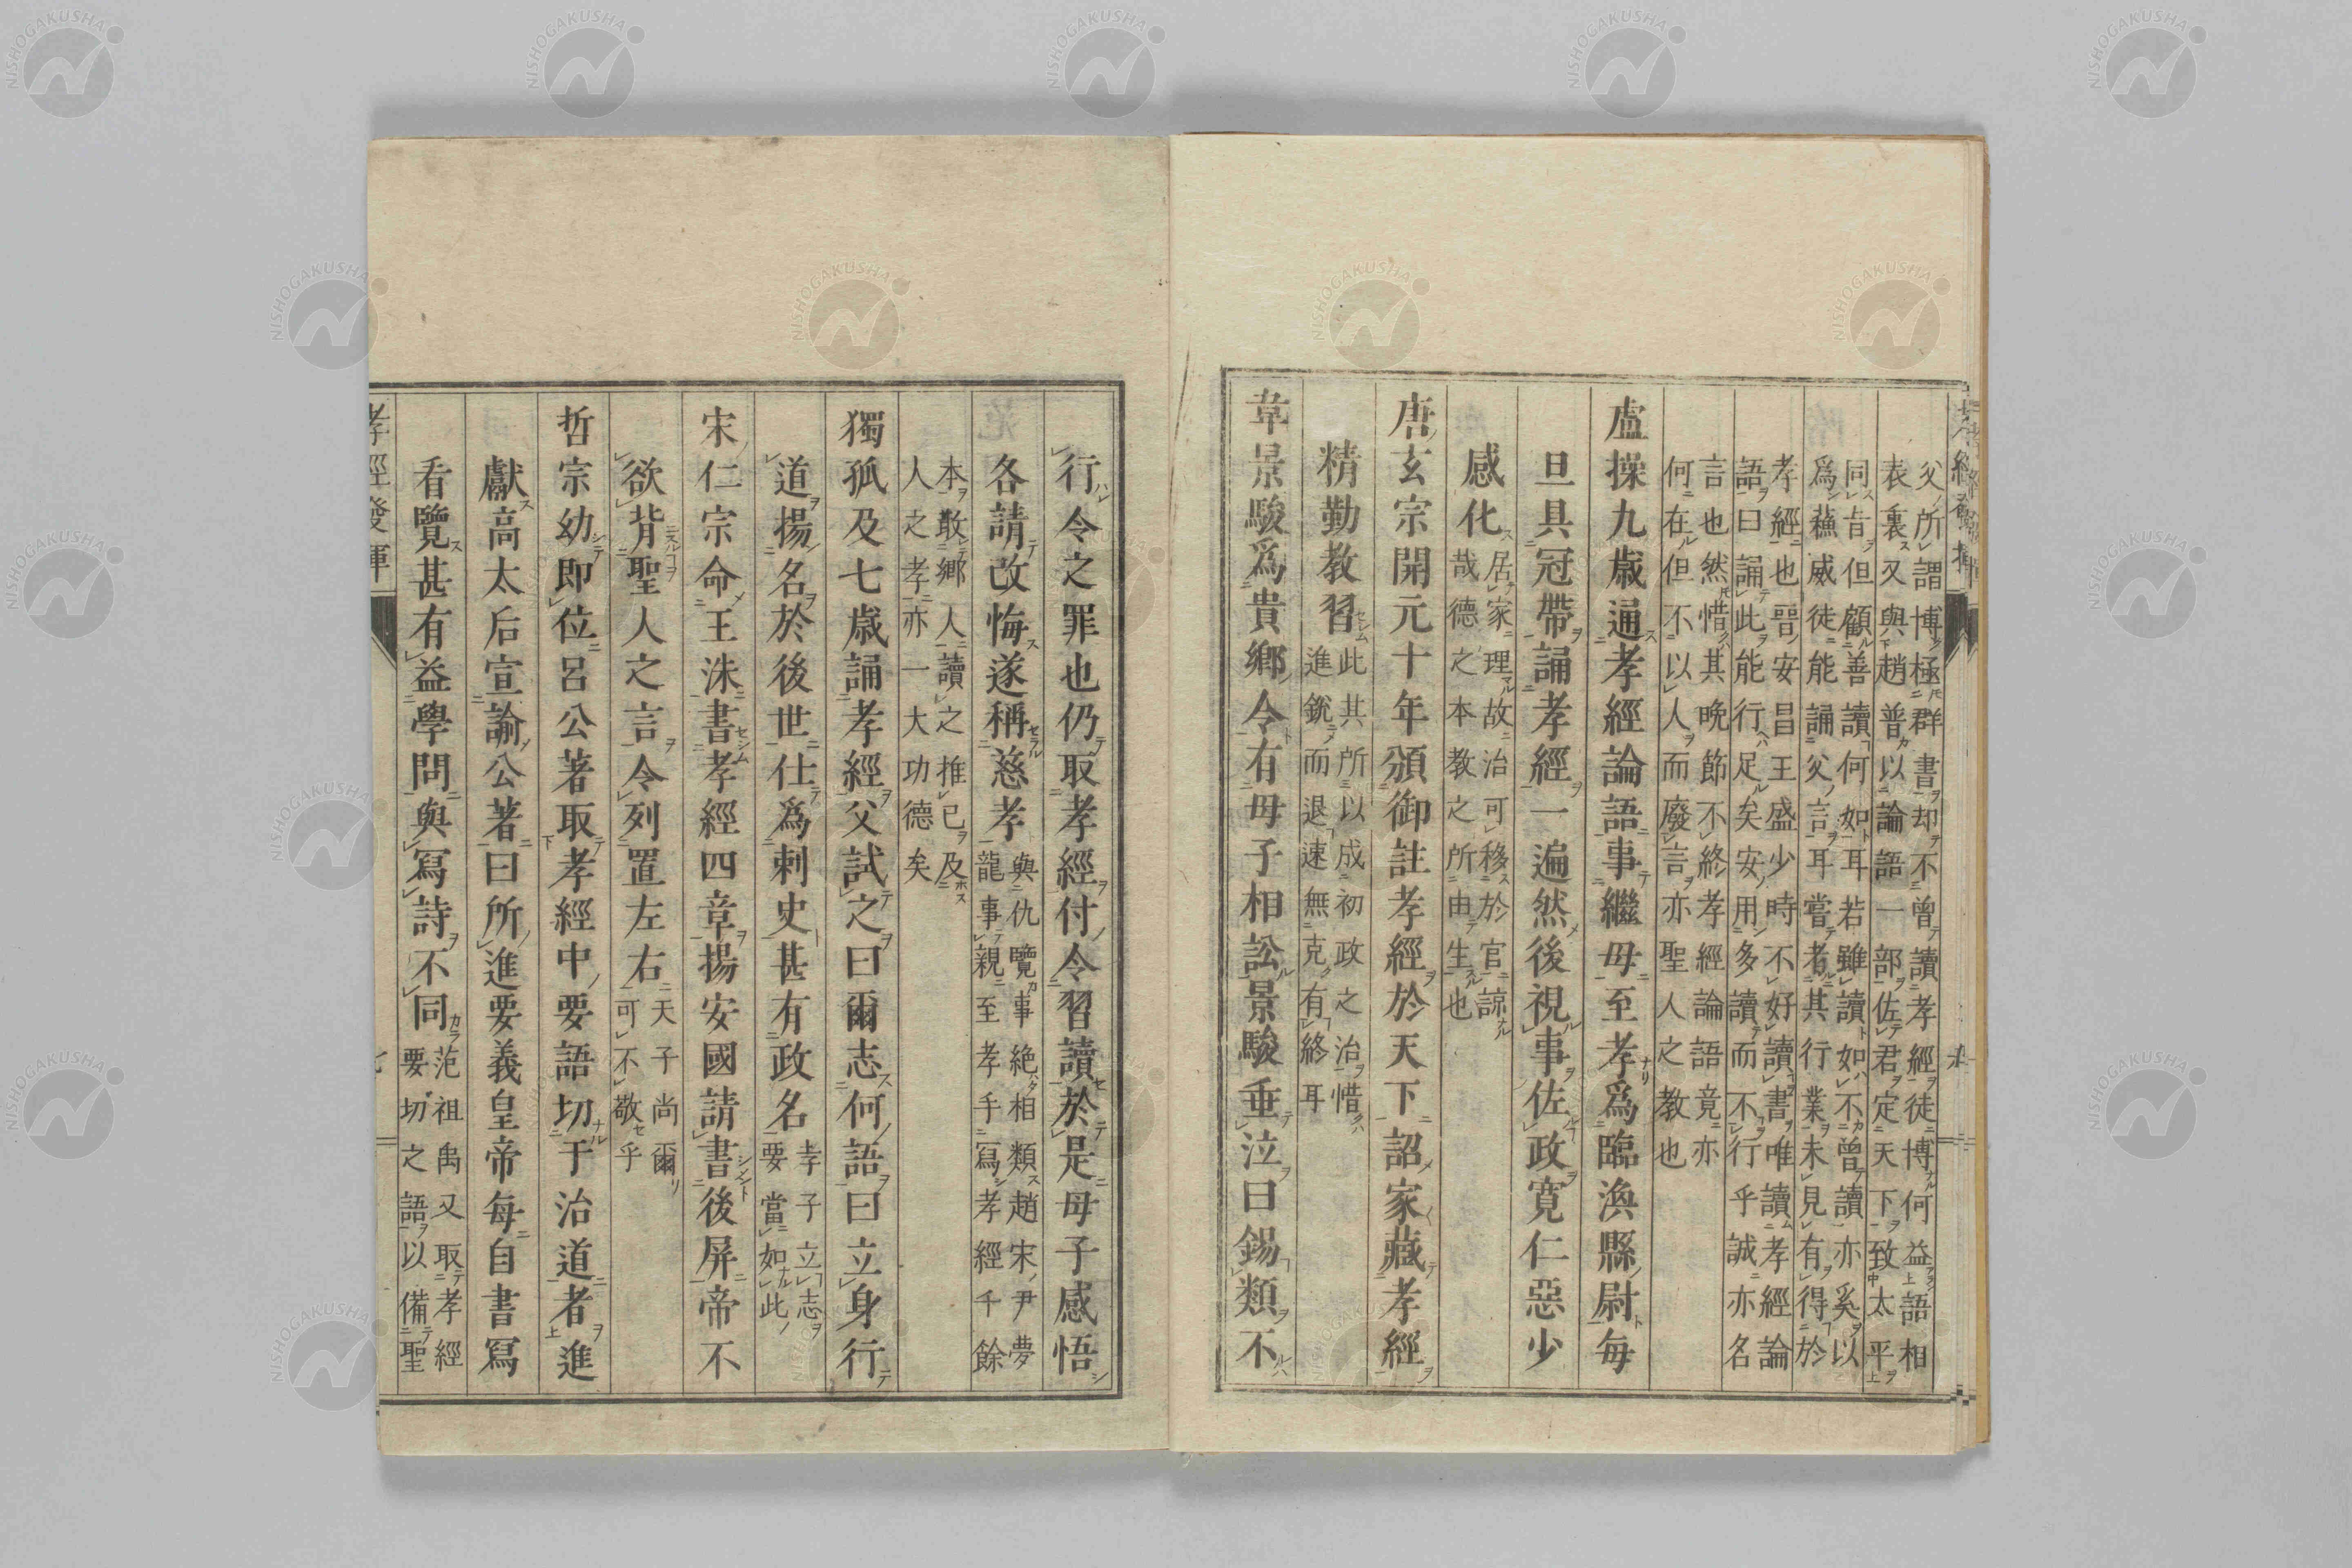 父所謂博極群書却不曾讀孝經徒博何益語相
表裏又與趙普以論語一部佐君定天下致太平
同旨但顧善讀何如耳若雖讀如不曾讀亦奚以
爲蘓威徒能誦父言耳嘗者其行業未見有得於
孝經也晋安昌王盛少時不好讀書唯讀孝經論
語曰誦此能行足矣安用多讀而不行乎誠亦名
言也然惜其晩節不終孝經論語竟亦
何在但不以人而廢言亦聖人之教也
盧操九歳通孝經論語事繼母至孝爲臨渙縣尉毎
旦具冠帶誦孝經一遍然後視事佐政寛仁惡少
感化居家理故治可移於官諒
哉德之本教之所由生也
唐玄宗開元十年頒御註孝經於天下詔家藏孝經
精勤教習此其所以成初政之治惜
進銳而退速無克有終耳
韋景駿爲貴郷令有母子相訟景駿垂泣曰錫類不
行令之罪也仍取孝經付令習讀於是母子感悟
各請改悔遂稱慈孝與仇覽事絶相類趙宋尹夢
龍事親至孝手寫孝經千餘
本散郷人讀之推已及
人之孝亦一大功德矣
獨孤及七歳誦孝經父試之曰爾志何語曰立身行
道揚名於後世仕爲刺史甚有政名孝子立志
要當如此
宋仁宗命王洙書孝經四章揚安國請書後屏帝不
欲背聖人之言令列置左右天子尚爾
可不敬乎
哲宗幼即位呂公著取孝經中要語切于治道者進
獻高太后宣諭公著曰所進要義皇帝毎自書寫
看覽甚有益學問與寫詩不同范祖禹又取孝經
要切之語以備聖
孝經發揮
NISHOGAKUSHA